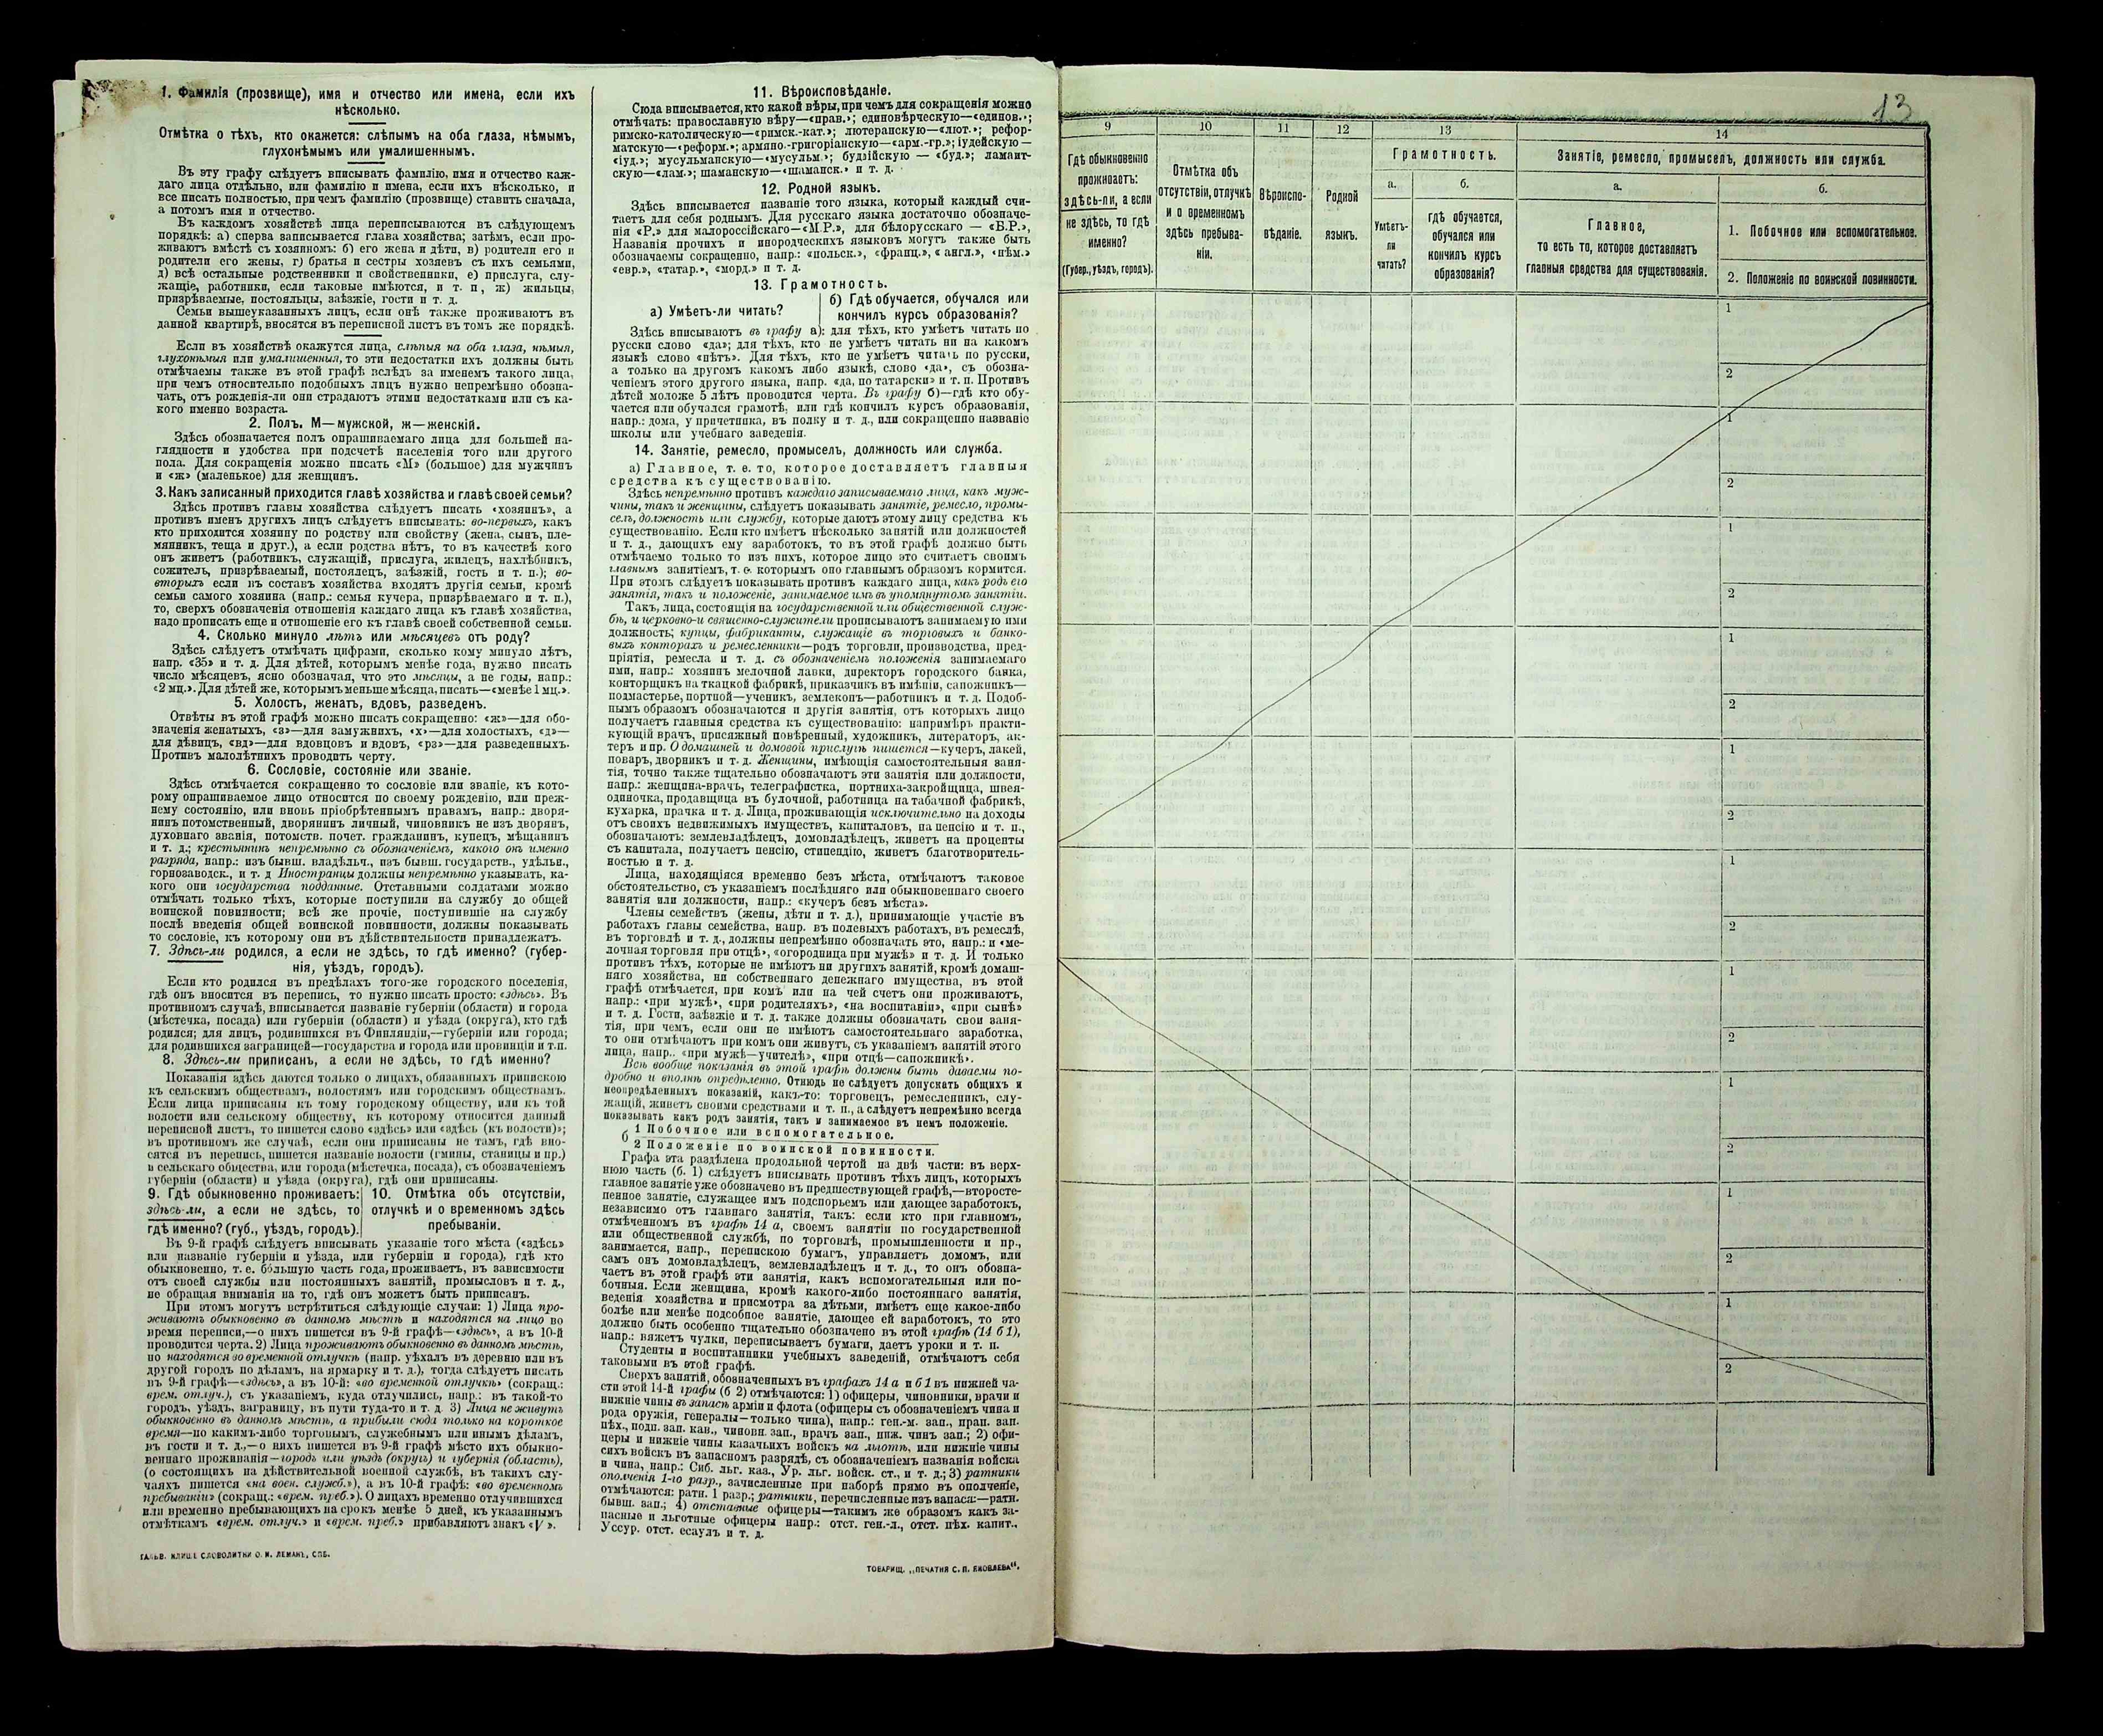 1. Фамилія (прозвище), имя и отчество или имена, если ихъ
нѣсколько.
Отмѣтка о тѣхъ, кто окажется: слѣпымъ на оба глаза, нѣмымъ,
глухонѣмымъ или умалишеннымъ.
Въ эту графу слѣдуетъ вписывать фамилію, имя и отчество каж-
даго лица отдѣльно, или фамилію и имена, если ихъ нѣсколько, и
все писать полностью, при чемъ фамилію (прозвище) ставить сначала,
а потомъ имя и отчество.
Въ каждомъ хозяйствѣ лица переписываются въ слѣдующемъ
порядкѣ: а) сперва записывается глава хозяйства; затѣмъ, если про-
живаютъ вмѣстѣ съ хозяиномъ: б) его жена и дѣти, в) родители его и
родители его жены, г) братья и сестры хозяевъ съ ихъ семьями,
д) всѣ остальные родственники и свойственники, е) прислуга, слу-
жащіе, работники, если таковые имѣются, и т. п, ж) жильцы,
призрѣваемые, постояльцы, заѣзжіе, гости и т. д.
Семьи вышеуказанныхъ лицъ, если онѣ также проживаютъ въ
данной квартирѣ, вносятся въ переписной листъ въ томъ же порядкѣ.
Если въ хозяйствѣ окажутся лица, слѣпыя на оба глаза, нѣмыя,
глухонѣмыя или умалишенныя, то эти недостатки ихъ должны быть
отмѣчаемы также въ этой графѣ вслѣдъ за именемъ такого лица,
при чемъ относительно подобныхъ лицъ нужно непремѣнно обозна-
чать, отъ рожденія-ли они страдаютъ этими недостатками или съ ка-
кого именно возраста.
2. Полъ. М—мужской, ж—женскій.
Здѣсь обозначается полъ опрашиваемаго лица для большей на-
глядности и удобства при подсчетѣ населенія того или другого
пола. Для сокращенія можно писать «М» (большое) для мужчинъ
и «ж» (маленькое) для женщинъ.
3. Какъ записанный приходится главѣ хозяйства и главѣ своей семьи?
Здѣсь противъ главы хозяйства слѣдуетъ писать «хозяинъ», а
противъ именъ другихъ лицъ слѣдуетъ вписывать: во-первыхъ, какъ
кто приходится хозяину по родству или свойству (жена, сынъ, пле-
мянникъ, теща и друг.), а если родства нѣтъ, то въ качествѣ кого
онъ живетъ (работникъ, служащій, прислуга, жилецъ, нахлѣбникъ,
сожитель, призрѣваемый, постоялецъ, заѣзжій, гость и т. п.); во-
вторыхъ если въ составъ хозяйства входятъ другія семьи, кромѣ
семьи самого хозяина (напр.: семья кучера, призрѣваемаго и т. п.),
то, сверхъ обозначенія отношенія каждаго лица къ главѣ хозяйства,
надо прописать еще и отношеніе его къ главѣ своей собственной семьи.
4. Сколько минуло лѣтъ или мѣсяцевъ отъ роду?
Здѣсь слѣдуетъ отмѣчать цифрами, сколько кому минуло лѣтъ,
напр. «35» и т. д. Для дѣтей, которымъ менѣе года, нужно писать
число мѣсяцевъ, ясно обозначая, что это мѣсяцы, а не годы, напр.:
«2 мц.». Для дѣтей же, которымъ меньше мѣсяца, писать—«менѣе 1 мц.».
5. Холостъ, женатъ, вдовъ, разведенъ.
Отвѣты въ этой графѣ можно писать сокращенно: «ж»—для обо-
значенія женатыхъ, «з»—для замужнихъ, «х»—для холостыхъ, «д»—
для дѣвицъ, «вд»—для вдовцовъ и вдовъ, «рз»—для разведенныхъ.
Противъ малолѣтнихъ проводить черту.
6. Сословіе, состояніе или званіе.
Здѣсь отмѣчается сокращенно то сословіе или званіе, къ кото-
рому опрашиваемое лицо относится по своему рожденію, или преж-
нему состоянію, или вновь пріобрѣтеннымъ правамъ, напр.: дворя-
нинъ потомственный, дворянинъ личный, чиновникъ не изъ дворянъ,
духовнаго званія, потомств. почет. гражданинъ, купецъ, мѣщанинъ
и т. д.; крестьянинъ непремѣнно съ обозначеніемъ, какого онъ именно
разряда, напр.: изъ бывш. владѣльч., изъ бывш. государств., удѣльн.,
горнозаводск., и т. д Иностранцы должны непремѣнно указывать, ка-
кого они государства подданные. Отставными солдатами можно
отмѣчать только тѣхъ, которые поступили на службу до общей
воинской повинности; всѣ же прочіе, поступившіе на службу
послѣ введенія общей воинской повинности, должны показывать
то сословіе, къ которому они въ дѣйствительности принадлежатъ.
7. Здѣсь-ли родился, а если не здѣсь, то гдѣ именно? (губер-
нія, уѣздъ, городъ).
Если кто родился въ предѣлахъ того-же городского поселенія,
гдѣ онъ вносится въ перепись, то нужно писать просто: «здѣсь». Въ
противномъ случаѣ, вписывается названіе губерніи (области) и города
(мѣстечка, посада) или губерніи (области) и уѣзда (округа), кто гдѣ
родился; для лицъ, родившихся въ Финляндіи,—губерніи или города;
для родившихся заграницей—государства и города или провинціи и т.п.
8. Здѣсь-ли приписанъ, а если не здѣсь, то гдѣ именно?
Показанія здѣсь даются только о лицахъ, обязанныхъ припискою
къ сельскимъ обществамъ, волостямъ или городскимъ обществамъ.
Если лица приписаны къ тому городскому обществу, или къ той
волости или сельскому обществу, къ которому относится данный
переписной листъ, то пишется слово «здѣсь» или «здѣсь (къ волости)»;
въ противномъ же случаѣ, если они приписаны не тамъ, гдѣ вно-
сятся въ перепись, пишется названіе волости (гмины, станицы и пр.)
и сельскаго общества, или города (мѣстечка, посада), съ обозначеніемъ
губерніи (области) и уѣзда (округа), гдѣ они приписаны.
9. Гдѣ обыкновенно проживаетъ:
здѣсь-ли, а если не здѣсь, то
гдѣ именно? (губ., уѣздъ, городъ).
10. Отмѣтка объ отсутствіи,
отлучкѣ и о временномъ здѣсь
пребываніи.
Въ 9-й графѣ слѣдуетъ вписывать указаніе того мѣста («здѣсь»
или названіе губерніи и уѣзда, или губерніи и города), гдѣ кто
обыкновенно, т. е. бо́льшую часть года, проживаетъ, въ зависимости
отъ своей службы или постоянныхъ занятій, промысловъ и т. д.,
не обращая вниманія на то, гдѣ онъ можетъ быть приписанъ.
При этомъ могутъ встрѣтиться слѣдующіе случаи: 1) Лица про-
живаютъ обыкновенно въ данномъ мѣстѣ и находятся на лицо во
время переписи,—о нихъ пишется въ 9-й графѣ—«здѣсь», а въ 10-й
проводится черта. 2) Лица проживаютъ обыкновенно въ данномъ мѣстѣ,
но находятся во временной отлучкѣ (напр. уѣхалъ въ деревню или въ
другой городъ по дѣламъ, на ярмарку и т. д.), тогда слѣдуетъ писать
въ 9-й графѣ—«здѣсь», а въ 10-й: «во временной отлучкѣ» (сокращ.:
врем. отлуч.), съ указаніемъ, куда отлучились, напр.: въ такой-то
городъ, уѣздъ, заграницу, въ пути туда-то и т. д. 3) Лица не живутъ
обыкновенно въ данномъ мѣстѣ, а прибыли сюда только на короткое
время—по какимъ-либо торговымъ, служебнымъ или инымъ дѣламъ,
въ гости и т. д.,—о нихъ пишется въ 9-й графѣ мѣсто ихъ обыкно-
веннаго проживанія—городъ или уѣздъ (округъ) и губернія (область),
(о состоящихъ на дѣйствительной военной службѣ, въ такихъ слу-
чаяхъ пишется «на воен. служб.»), а въ 10-й графѣ: «во временномъ
пребываніи» (сокращ.: «врем. преб.»). О лицахъ временно отлучившихся
или временно пребывающихъ на срокъ менѣе 5 дней, къ указаннымъ
отмѣткамъ «врем. отлуч.» и «врем. преб.» прибавляютъ знакъ «√».
ГАЛЬВ. КЛИШЕ СЛОВОЛИТНИ О. И. ЛЕМАНЪ, СПБ.
11. Вѣроисповѣданіе.
Сюда вписывается, кто какой вѣры, при чемъ для сокращенія можно
отмѣчать: православную вѣру—«прав.»; единовѣрческую—«единов.»;
римско-католическую—«римск.-кат.»; лютеранскую—«лют.»; рефор-
матскую—«реформ.»; армяно.-григоріанскую—«арм.-гр.»; іудейскую—
«іуд.»; мусульманскую—«мусульм.»; будзійскую — «буд.»; ламаит-
скую—«лам.»; шаманскую—«шаманск.» и т. д.
12. Родной языкъ.
Здѣсь вписывается названіе того языка, который каждый счи-
таетъ для себя роднымъ. Для русскаго языка достаточно обозначе-
нія «Р.» для малороссійскаго—«М.Р.», для бѣлорусскаго — «Б.Р.»,
Названія прочихъ и инородческихъ языковъ могутъ также быть
обозначаемы сокращенно, напр.: «польск.», «франц.», «англ.», «нѣм.»
«евр.», «татар.», «морд.» и т. д.
13. Грамотность.
а) Умѣетъ-ли читать?
б) Гдѣ обучается, обучался или
кончилъ курсъ образованія?
Здѣсь вписываютъ въ графу а): для тѣхъ, кто умѣетъ читать по
русски слово «да»; для тѣхъ, кто не умѣетъ читать ни на какомъ
языкѣ слово «нѣтъ». Для тѣхъ, кто не умѣетъ читать по русски,
а только на другомъ какомъ либо языкѣ, слово «да», съ обозна-
ченіемъ этого другого языка, напр. «да, по татарски» и т. п. Противъ
дѣтей моложе 5 лѣтъ проводится черта. Въ графу б)—гдѣ кто обу-
чается или обучался грамотѣ, или гдѣ кончилъ курсъ образованія,
напр.: дома, у причетника, въ полку и т. д., или сокращенно названіе
школы или учебнаго заведенія.
14. Занятіе, ремесло, промыселъ, должность или служба.
а) Главное, т. е. то, которое доставляетъ главныя
средства къ существованію.
Здѣсь непремѣнно противъ каждаго записываемаго лица, какъ муж-
чины, такъ и женщины, слѣдуетъ показывать занятіе, ремесло, промы-
селъ, должность или службу, которые даютъ этому лицу средства къ
существованію. Если кто имѣетъ нѣсколько занятій или должностей
и т. д., дающихъ ему заработокъ, то въ этой графѣ должно быть
отмѣчаемо только то изъ нихъ, которое лицо это считаетъ своимъ
главнымъ занятіемъ, т. е. которымъ оно главнымъ образомъ кормится.
При этомъ слѣдуетъ показывать противъ каждаго лица, какъ родъ его
занятія, такъ и положеніе, занимаемое имъ въ упомянутомъ занятіи.
Такъ, лица, состоящія на государственной или общественной служ-
бѣ, и церковно-и священно-служители прописываютъ занимаемую ими
должность; купцы, фабриканты, служащіе въ торговыхъ и банко-
выхъ конторахъ и ремесленники—родъ торговли, производства, пред-
пріятія, ремесла и т. д. съ обозначеніемъ положенія занимаемаго
ими, напр.: хозяинъ мелочной лавки, директоръ городского банка,
конторщикъ на ткацкой фабрикѣ, приказчикъ въ имѣніи, сапожникъ—
подмастерье, портной—ученикъ, землекопъ—работникъ и т. д. Подоб-
нымъ образомъ обозначаются и другія занятія, отъ которыхъ лицо
получаетъ главныя средства къ существованію: напримѣръ практи-
кующій врачъ, присяжный повѣренный, художникъ, литераторъ, ак-
теръ и пр. О домашней и домовой прислугѣ пишется—кучеръ, лакей,
поваръ, дворникъ и т. д. Женщины, имѣющія самостоятельныя заня-
тія, точно также тщательно обозначаютъ эти занятія или должности,
напр.: женщина-врачъ, телеграфистка, портниха-закройщица, швея-
одиночка, продавщица въ булочной, работница на табачной фабрикѣ,
кухарка, прачка и т. д. Лица, проживающія исключительно на доходы
отъ своихъ недвижимыхъ имуществъ, капиталовъ, на пенсію и т. п.,
обозначаютъ: землевладѣлецъ, домовладѣлецъ, живетъ на проценты
съ капитала, получаетъ пенсію, стипендію, живетъ благотворитель-
ностью и т. д.
Лица, находящіяся временно безъ мѣста, отмѣчаютъ таковое
обстоятельство, съ указаніемъ послѣдняго или обыкновеннаго своего
занятія или должности, напр.: «кучеръ безъ мѣста».
Члены семействъ (жены, дѣти и т. д.), принимающіе участіе въ
работахъ главы семейства, напр. въ полевыхъ работахъ, въ ремеслѣ,
въ торговлѣ и т. д., должны непремѣнно обозначать это, напр.: и «ме-
лочная торговля при отцѣ», «огородница при мужѣ» и т. д. И только
противъ тѣхъ, которые не имѣютъ ни другихъ занятій, кромѣ домаш-
няго хозяйства, ни собственнаго денежнаго имущества, въ этой
графѣ отмѣчается, при комъ или на чей счетъ они проживаютъ,
напр.: «при мужѣ», «при родителяхъ», «на воспитаніи», «при сынѣ»
и т. д. Гости, заѣзжіе и т. д. также должны обозначать свои заня-
тія, при чемъ, если они не имѣютъ самостоятельнаго заработка,
то они отмѣчаютъ при комъ они живутъ, съ указаніемъ занятій этого
лица, напр.. «при мужѣ—учителѣ», «при отцѣ—сапожникѣ».
Всѣ вообще показанія въ этой графѣ должны быть даваемы по-
дробно и вполнѣ опредѣленно. Отнюдь не слѣдуетъ допускать общихъ и
неопредѣленныхъ показаній, какъ-то: торговецъ, ремесленникъ, слу-
жащій, живетъ своими средствами и т. п., а слѣдуетъ непремѣнно всегда
показывать какъ родъ занятія, такъ и занимаемое въ немъ положеніе.
б 1 Побочное или вспомогательное.
2 Положеніе по воинской повинности.
Графа эта раздѣлена продольной чертой на двѣ части: въ верх-
нюю часть (б. 1) слѣдуетъ вписывать противъ тѣхъ лицъ, которыхъ
главное занятіе уже обозначено въ предшествующей графѣ,—второсте-
пенное занятіе, служащее имъ подспорьемъ или дающее заработокъ,
независимо отъ главнаго занятія, такъ: если кто при главномъ,
отмѣченномъ въ графѣ 14 а, своемъ занятіи по государственной
или общественной службѣ, по торговлѣ, промышленности и пр.,
занимается, напр., перепискою бумагъ, управляетъ домомъ, или
самъ онъ домовладѣлецъ, землевладѣлецъ и т. д., то онъ обозна-
чаетъ въ этой графѣ эти занятія, какъ вспомогательныя или по-
бочныя. Если женщина, кромѣ какого-либо постояннаго занятія,
веденія хозяйства и присмотра за дѣтьми, имѣетъ еще какое-либо
болѣе или менѣе подсобное занятіе, дающее ей заработокъ, то это
должно быть особенно тщательно обозначено въ этой графѣ (14 б 1),
напр.: вяжетъ чулки, переписываетъ бумаги, даетъ уроки и т. п.
Студенты и воспитанники учебныхъ заведеній, отмѣчаютъ себя
таковыми въ этой графѣ.
Сверхъ занятій, обозначенныхъ въ графахъ 14 а и б 1 въ нижней ча-
сти этой 14-й графы (б 2) отмѣчаются: 1) офицеры, чиновники, врачи и
нижніе чины въ запасѣ арміи и флота (офицеры съ обозначеніемъ чина и
рода оружія, генералы—только чина), напр.: ген.-м. зап., прап. зап.
пѣх., подп. зап. кав., чиновн. зап., врачъ зап., ниж. чинъ зап.; 2) офи-
церы и нижніе чины казачьихъ войскъ на льготѣ, или нижніе чины
сихъ войскъ въ запасномъ разрядѣ, съ обозначеніемъ названія войска
и чина, напр.: Сиб. льг. каз., Ур. льг. войск. ст., и т. д.; 3) ратники
ополченія 1-го разр., зачисленные при наборѣ прямо въ ополченіе,
отмѣчаются: ратн. 1 разр.; ратники, перечисленные изъ запаса:—ратн.
бывш. зап.; 4) отставные офицеры—такимъ же образомъ какъ за-
пасные и льготные офицеры напр.: отст. ген.-л., отст. пѣх. капит.,
Уссур. отст. есаулъ и т. д.
ТОВАРИЩ. „ПЕЧАТНЯ С. П. ЯКОВЛЕВА“.
13
9
10
11
12
13
14
Гдѣ обыкновенно
проживаетъ:
здѣсь-ли, а если
не здѣсь, то гдѣ
именно?
(Губер., уѣздъ, городъ).
Отмѣтка объ
отсутствіи, отлучкѣ
и о временномъ
здѣсь пребыва-
ніи.
Вѣроиспо-
вѣданіе.
Родной
языкъ.
Грамотность.
а.
Умѣетъ-
ли
читать?
б.
гдѣ обучается,
обучался или
кончилъ курсъ
образованія?
Занятіе, ремесло, промыселъ, должность или служба.
а.
Главное,
то есть то, которое доставляетъ
главныя средства для существованія.
б.
1. Побочное или вспомогательное.
2. Положеніе по воинской повинности.
1
2
1
2
1
2
1
2
1
2
1
2
1
2
1
2
1
2
1
2